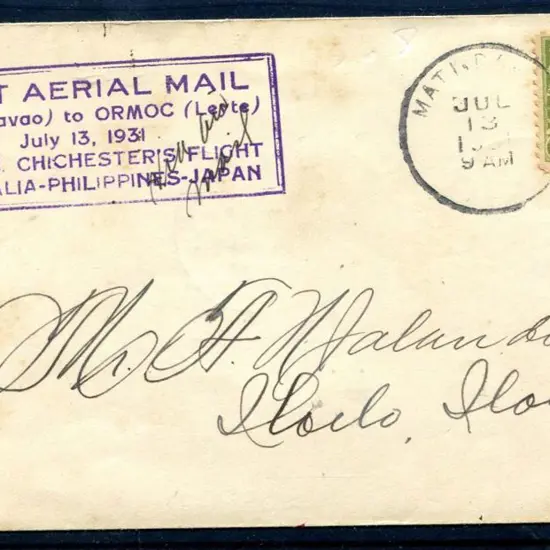 T AERIAL MAIL
avao) to ORMOC (Leyte)
July 13, 1931
. CHICHESTER'S FLIGHT
ALIA-PHILIPPINES-JAPAN
mail
MATI, D
JUL
13
9 AM
Mr. A.
Iloilo, Ilo